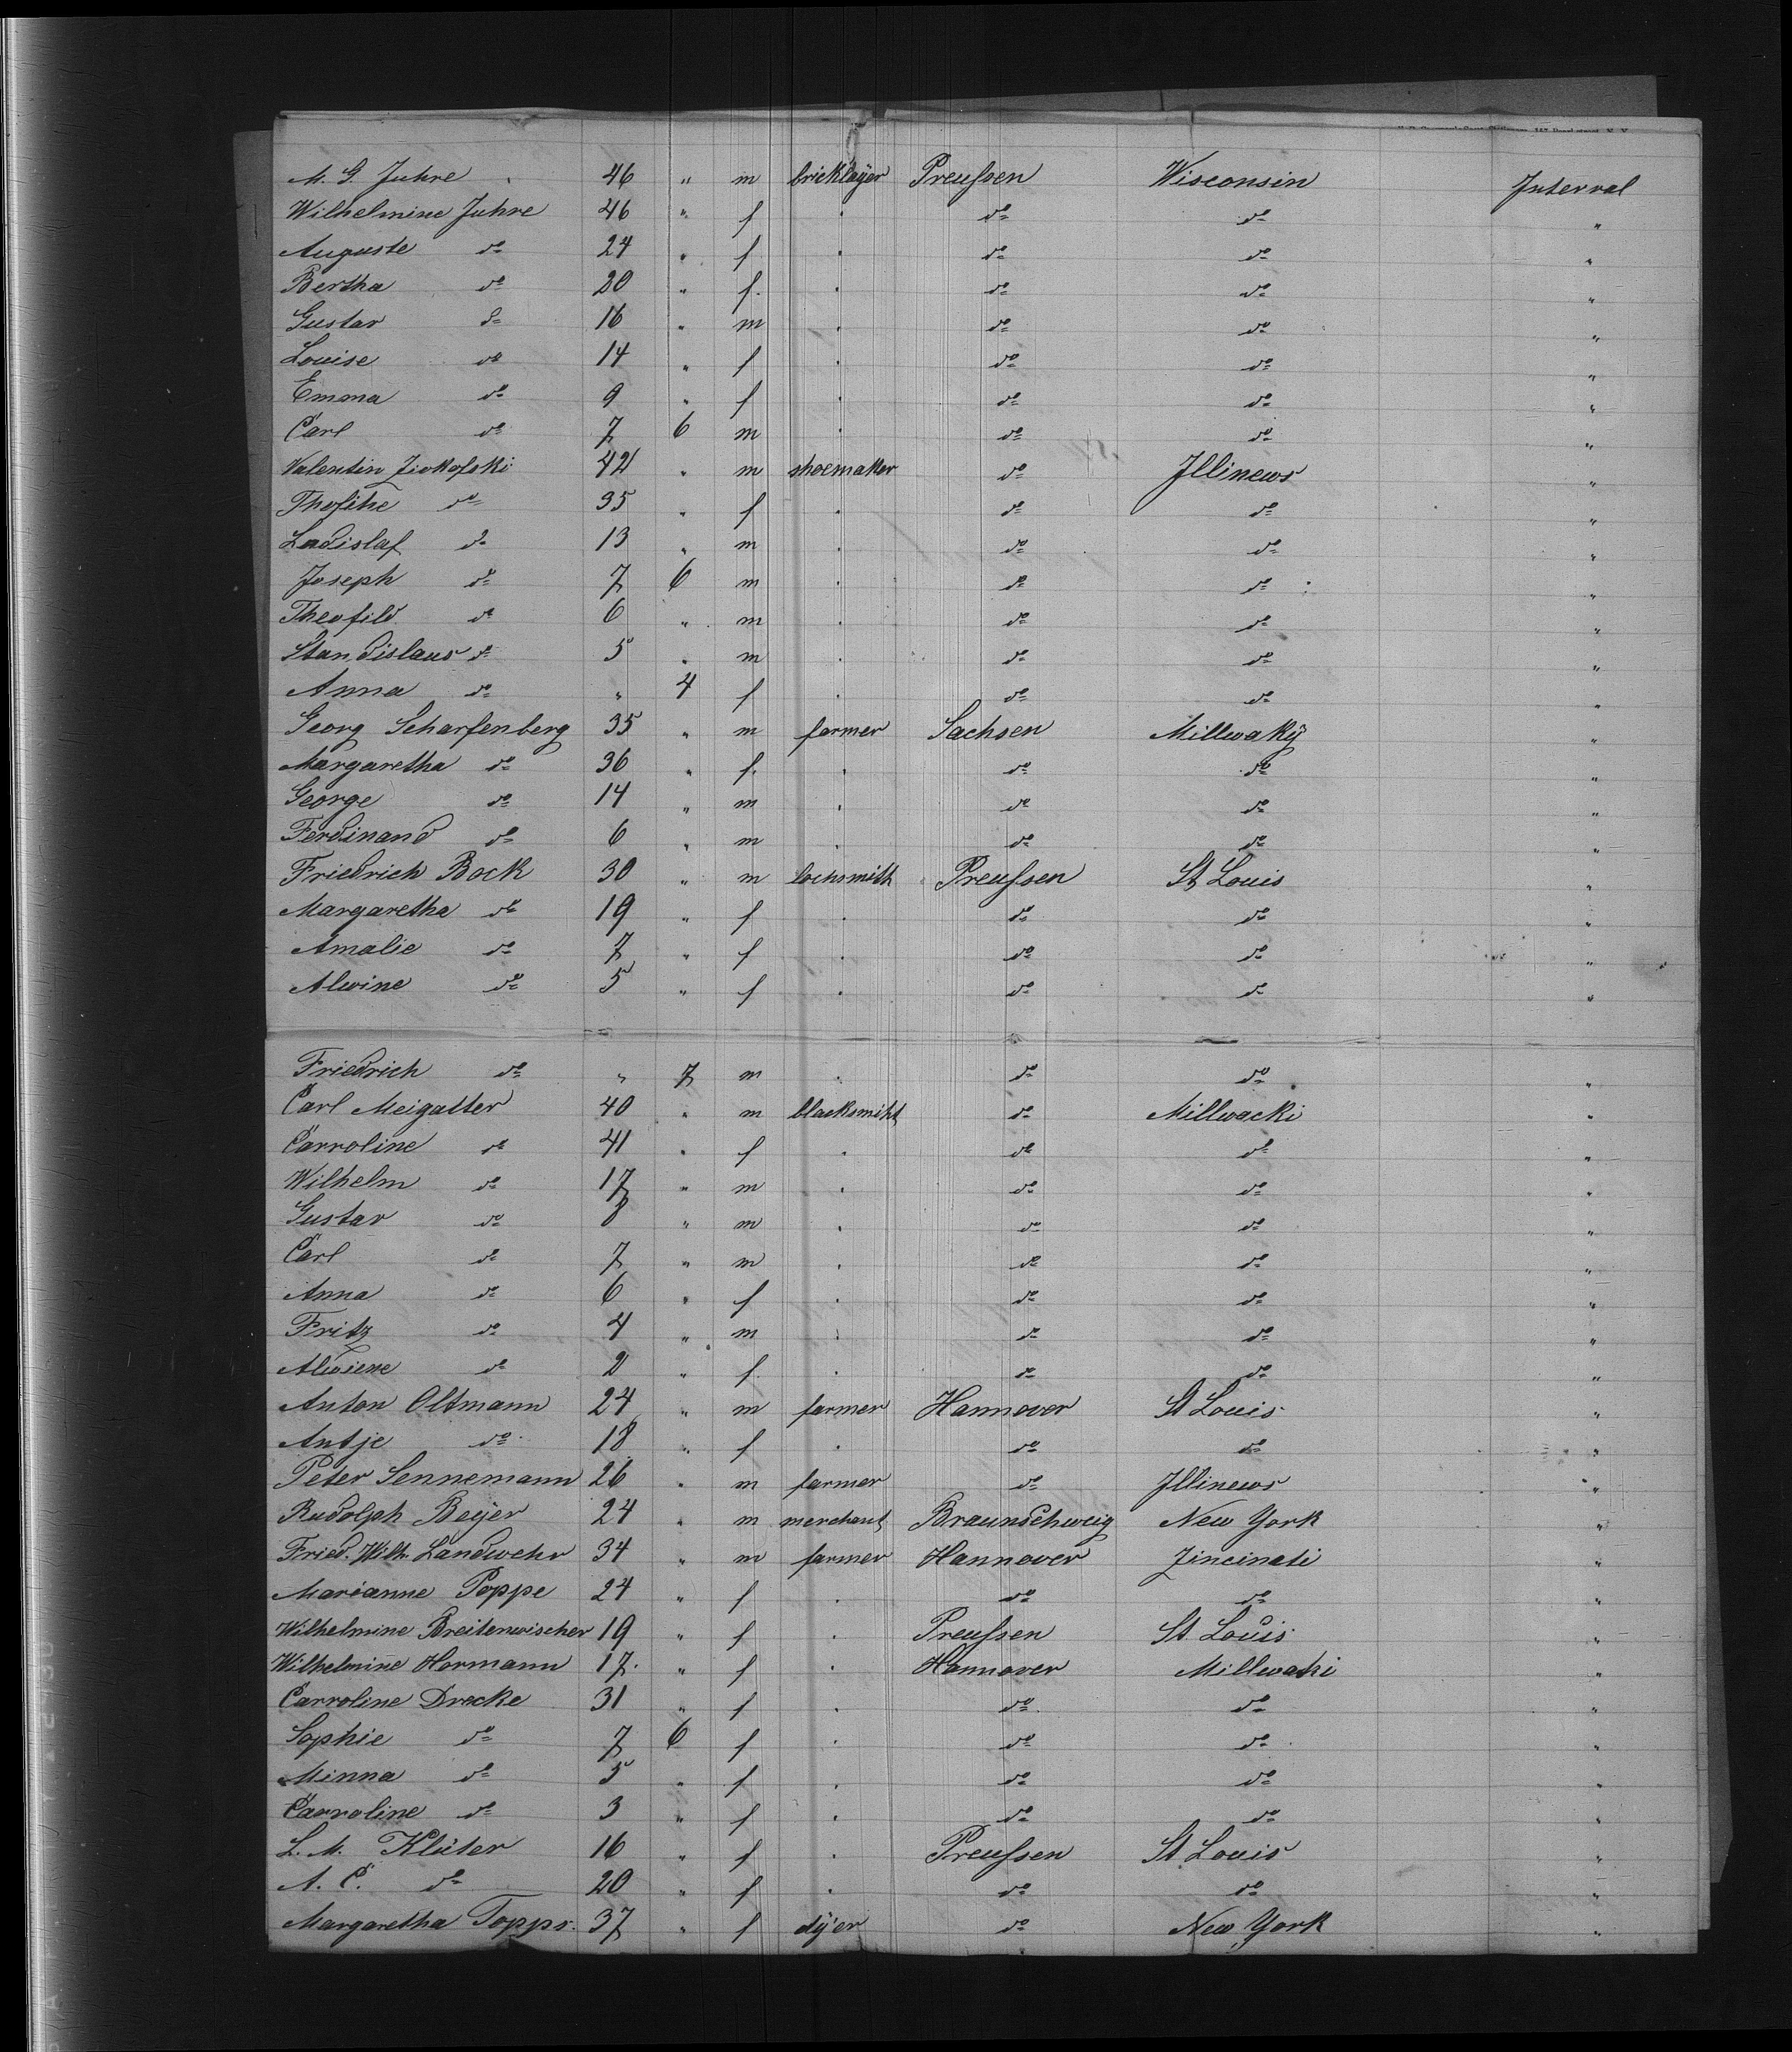 M. G. Juhre 46 " m bricklayer Preußen Wisconsin Interval
Wilhelmine Juhre 46 " f do do "
Auguste do 24 " f do do "
Bertha do 20 " f. do do "
Gustav do 16 " m do do "
Louise do 14 " f do do "
Emma do 9 " f do do "
Carl do 7 6 m do do "
Valentin 42 " m shoemaker do Illinews "
do 35 " f do do "
Ladislaf do 13 " m do do "
Joseph do 7 6 m do do "
Theofild do 6 " m do do "
Standislaus do 5 " m do do "
Anna do " 4 f do do "
Georg Scharfenberg 35 " m farmer Sachsen Millwaky "
Margaretha do 36 " f. do do "
George do 14 " m do do "
Ferdinand do 6 " m do do "
Friedrich Bock 30 " m lochsmith Preußen St Louis "
Margaretha do 19 " f do do "
Amalie do 7 " f do do "
Alwine do 5 " f do do "
Friedrich do " 7 m do do "
Carl Meigatter 40 " m blacksmiht do Millwacki "
Carroline do 41 " f do do "
Wilhelm do 17 " m do do "
Gustav do 8 " m do do "
Carl do 7 " m do do "
Anna do 6 " f do do "
Fritz do 4 " m do do "
Alwiene do 2 " f. do do "
Anton Oltmann 24 " m farmer Hannover St Louis "
Antje do 18 " f do do "
Peter Sennemann 26 " m farmer do Illinews "
Rudolph Beyer 24 " m merchant Braunschweig New York "
Fried. Wilh. Landwehr 34 " m farmer Hannover Zincinati "
Marianne Poppe 24 " f do do "
Wilhelmine Breitenwischer 19 " f Preußen St. Louis "
Wilhelmine Hormann 17. " f Hannover Millwaki "
Carroline Drecke 31 " f do do "
Sophie do 7 6 f do do "
Minna do 5 " f do do "
Carroline do 3 " f do do "
L. M. Klüter 16 " f Preußen St Louis "
A. C. do 20 " f do do "
Margaretha Topps. 37 " f dyer do New York "